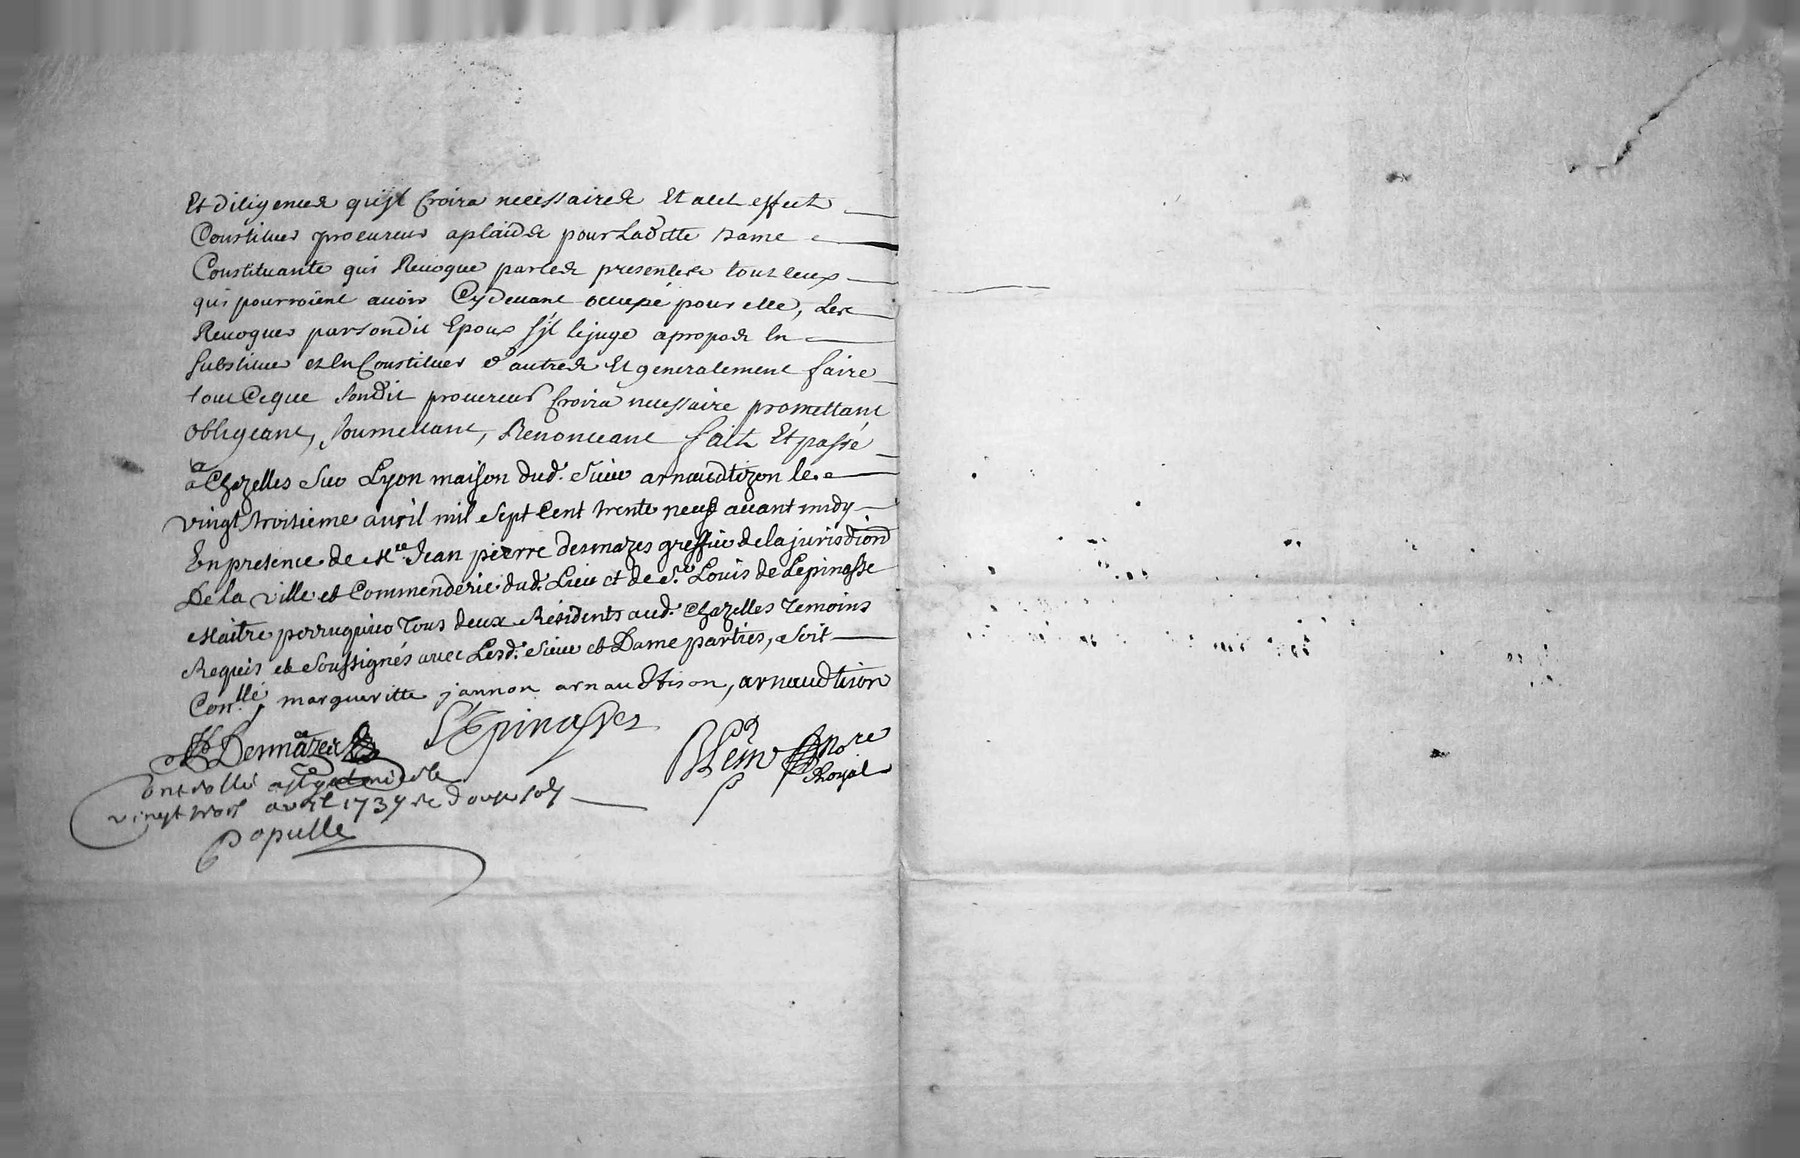 Et diligences qu'jl Croira necessaires Et acet effect
Constituer procureur aplaides pour laditte Dame
Constituante qui Revoque par ces presentes tous ceux
qui pourroient avoir Cydevant occupé pour elle, Les
Revoquer par sondit Epoux s'jl le juge apropos en
substituer et en Constituer d'autres Et generalement faire
tout Ceque sondit procureur Croira necessaire promettant
obligeant, soumettant, Renonceant fait Et passé
a Chazelles sur Lyon maison dud. sieur arnaudtizon le
vingt troisieme avril mil sept Cent trente neuf avant midy
En presence de Me Jean pierre desmazes greffier de la jurisdiond
De la ville et Commenderie dud. Lieu et de sr. Louis de Lepinasse
Maitre perruquier tous deux Residents aud. Chazelles temoins
Requis et soussignés avec Lesd. sieur et Dame parties, soit
Con.llé margueritte jannon arnaudtison, arnaudtison
Desmazes L'Epinasse
Nore
Royal
Controllé a st galmier le
vingt trois avril 1739 Re douze sols
Populle